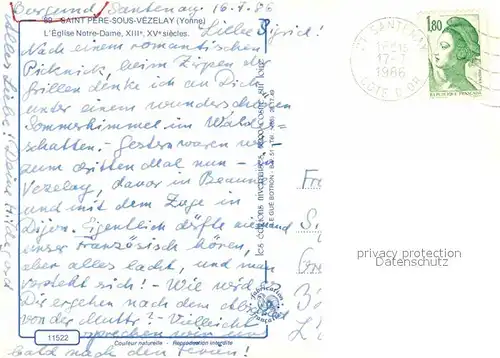 Burgund Santenay 16.7.86
89 - SAINT-PÈRE-SOUS-VÉZELAY (Yonne)
L'Église Notre-Dame, XIIIe, XVe siècles.
Liebe Sigrid!
Nach einem romantischen
Picknick, beim Zirpen der
Grillen denke ich an Dich
unter einem wunderschönen
Sommerhimmel im Wald-
schatten. - Gestern waren wir
zum dritten Mal nun - in
Vezelay, davor in Beaune
und mit dem Zuge in
Dijon. Eigentlich dürfte niemand
unser Französisch hören,
aber alles lacht, und man
versteht sich! - Wie wird
Dir ergehen nach dem
von der Mutti? - Vielleicht
sprechen wir uns
bald nach den Ferien!
Alles Liebe! Deine
21 SANTENAY
16H15
17-7
1986
COTE D'OR
1,80
REPUBLIQUE FRANÇAISE
Fr
S
Gr
3
L
privacy protection
Datenschutz
Fabrication
Française
11522
Couleur naturelle - Reproduction interdite